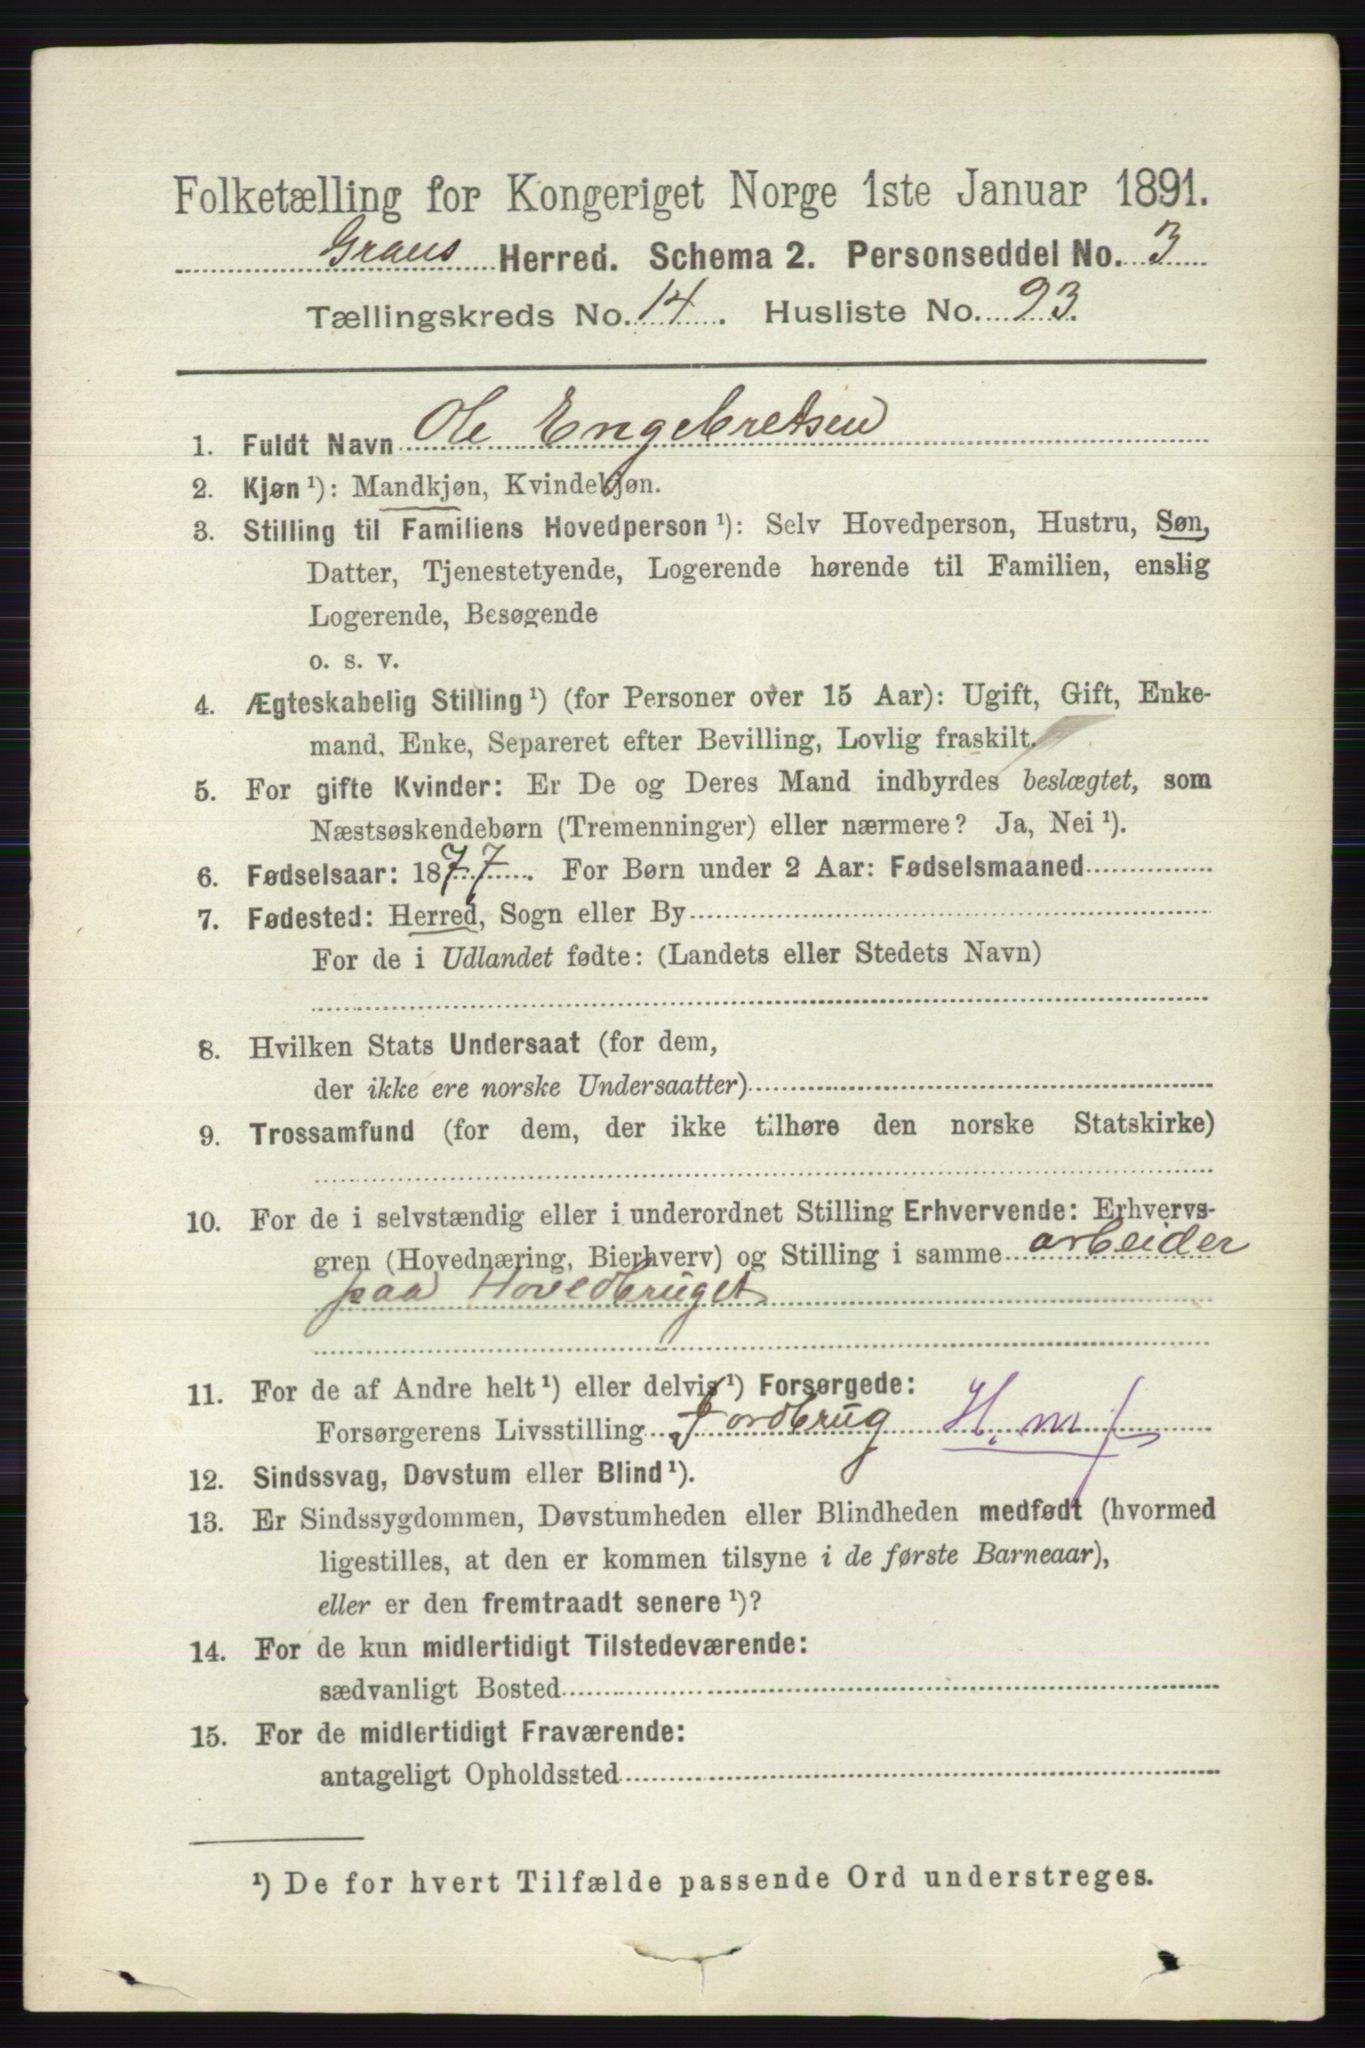 Folketælling for Kongeriget Norge 1ste Januar 1891.
Grans Herred. Schema 2. Personseddel No. 3
Tællingskreds No. 14. Husliste No. 93.
1. Fuldt Navn Ole Engebretsen
2. Kjøn ¹): Mandkjøn, Kvindekjøn.
3. Stilling til Familiens Hovedperson ¹): Selv Hovedperson, Hustru, Søn,
Datter, Tjenestetyende, Logerende hørende til Familien, enslig
Logerende, Besøgende
o. s. v.
4. Ægteskabelig Stilling ¹) (for Personer over 15 Aar): Ugift, Gift, Enke-
mand, Enke, Separeret efter Bevilling, Lovlig fraskilt.
5. For gifte Kvinder: Er De og Deres Mand indbyrdes beslægtet, som
Næstsøskendebørn (Tremenninger) eller nærmere? Ja, Nei ¹).
6. Fødselsaar: 1877. For Børn under 2 Aar: Fødselsmaaned
7. Fødested: Herred, Sogn eller By
For de i Udlandet fødte: (Landets eller Stedets Navn)
8. Hvilken Stats Undersaat (for dem,
der ikke ere norske Undersaatter)
9. Trossamfund (for dem, der ikke tilhøre den norske Statskirke)
10. For de i selvstændig eller i underordnet Stilling Erhvervende: Erhvervs-
gren (Hovednæring, Bierhverv) og Stilling i samme arbeider
paa Hovedbruget
11. For de af Andre helt ¹) eller delvis ¹) Forsørgede:
Forsørgerens Livsstilling Jordbrug H. m. f
12. Sindssvag, Døvstum eller Blind ¹).
13. Er Sindssygdommen, Døvstumheden eller Blindheden medfødt (hvormed
ligestilles, at den er kommen tilsyne i de første Barneaar),
eller er den fremtraadt senere ¹)?
14. For de kun midlertidigt Tilstedeværende:
sædvanligt Bosted
15. For de midlertidigt Fraværende:
antageligt Opholdssted
¹) De for hvert Tilfælde passende Ord understreges.